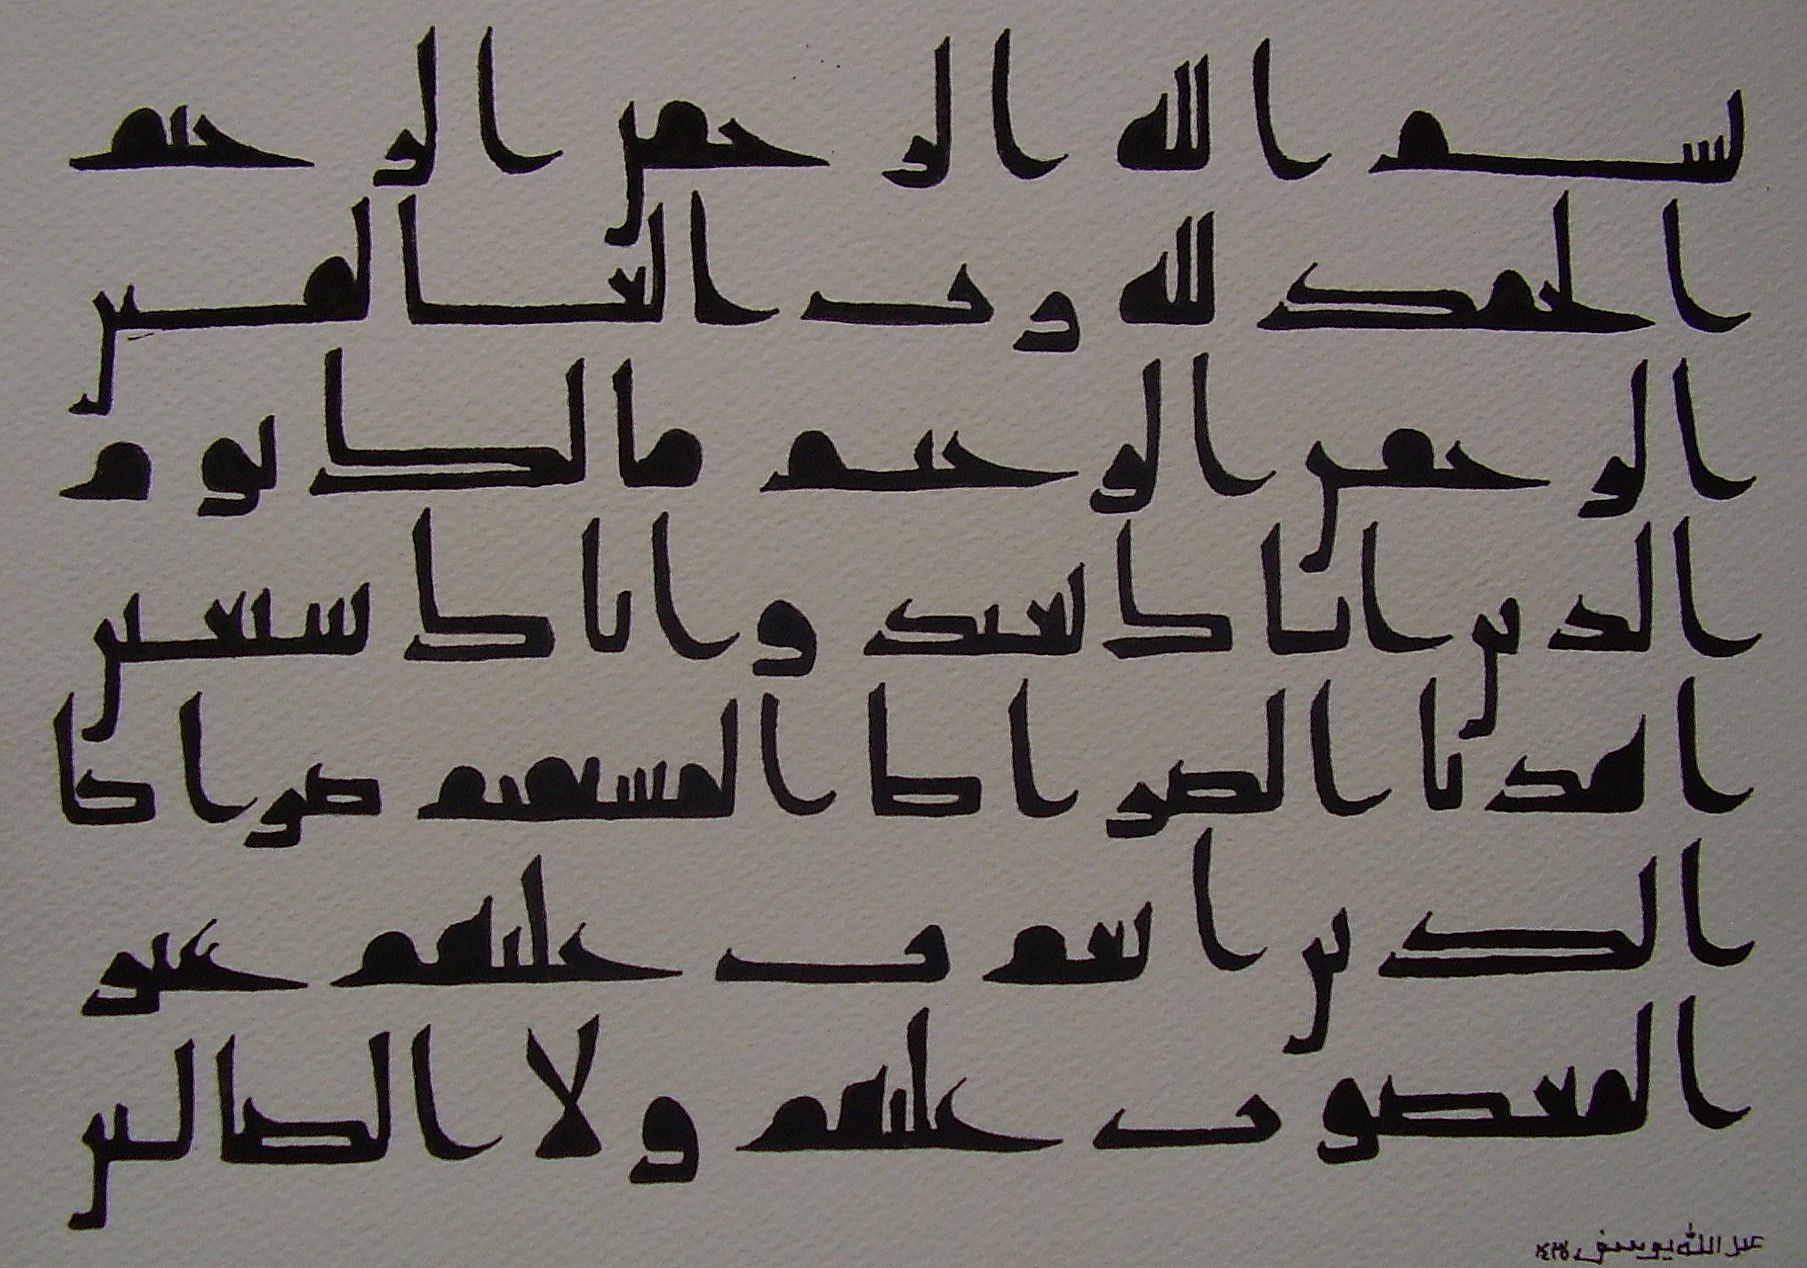 بسم الله الرحمن الرحيم
الحمد لله رب العالمين
الرحمن الرحيم مالك يوم
الدين اياك نعبد واياك نستعين
اهدنا الصراط المستقيم صراط
الذين انعمت عليهم غير
المغضوب عليهم ولا الضالين
عبدالله يوسف